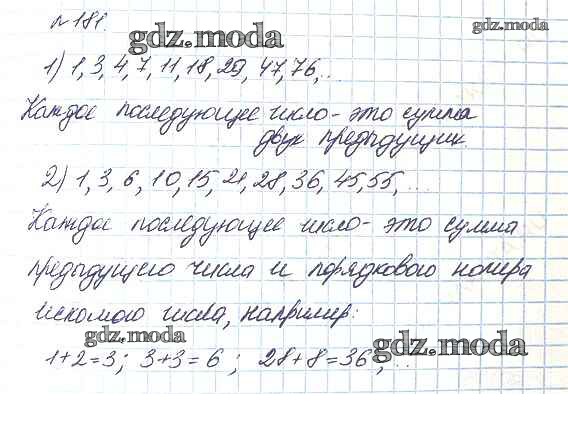 №181.
gdz.moda
gdz.moda
1) 1, 3, 4, 7, 11, 18, 29, 47, 76, ...
Каждое последующее число - это сумма
двух предыдущих.
2) 1, 3, 6, 10, 15, 21, 28, 36, 45, 55, ...
Каждое последующее число - это сумма
предыдущего числа и порядкового номера
искомого числа, например:
gdz.moda
gdz.moda
1+2=3; 3+3=6; 28+8=36, ...